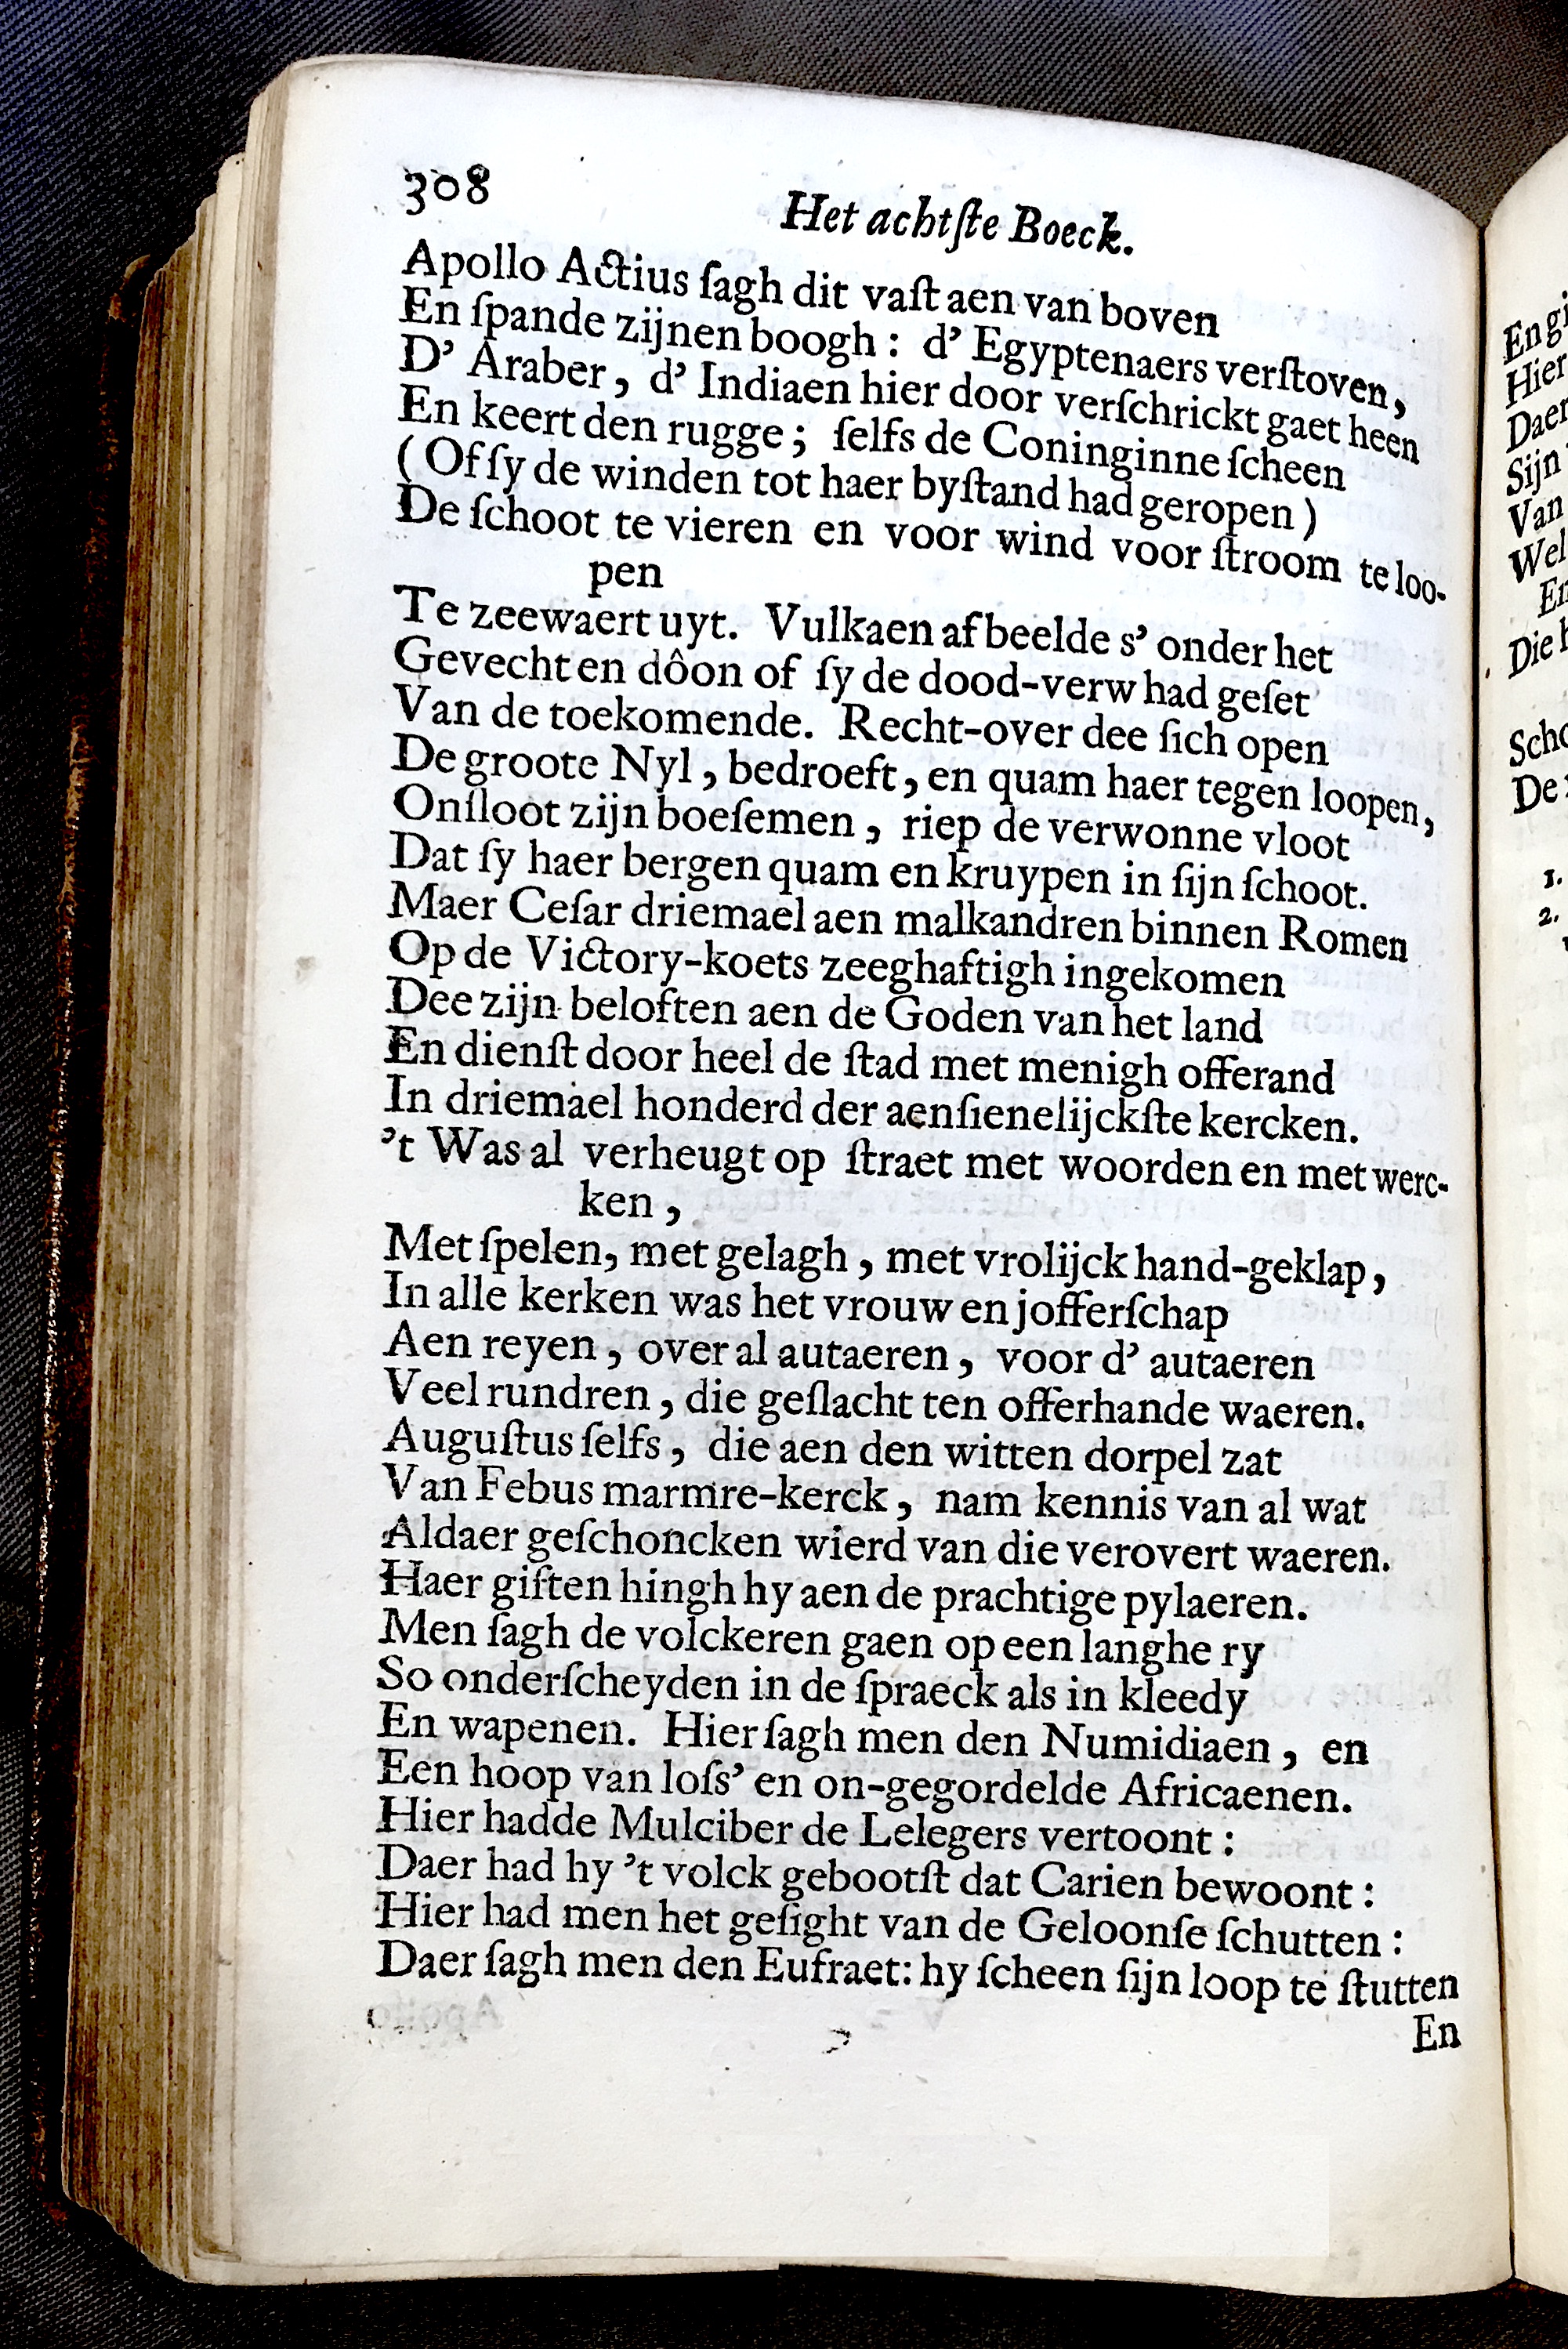 308
Het achtſte Boeck.
Apollo Actius ſagh dit vaſt aen van boven
En ſpande zijnen boogh: d' Egyptenaers verſtoven,
D' Araber, d' Indiaen hier door verſchrickt gaet heen
En keert den rugge; ſelfs de Coninginne ſcheen
(Of ſy de winden tot haer byſtand had geropen)
De ſchoot te vieren en voor wind voor ſtroom te loo-
pen
Te zeewaert uyt. Vulkaen afbeelde s' onder het
Gevecht en dôon of ſy de dood-verw had geſet
Van de toekomende. Recht-over dee ſich open
De groote Nyl, bedroeft, en quam haer tegen loopen,
Onſloot zijn boeſemen, riep de verwonne vloot
Dat ſy haer bergen quam en kruypen in ſijn ſchoot.
Maer Ceſar driemael aen malkandren binnen Romen
Op de Victory-koets zeeghaftigh ingekomen
Dee zijn beloften aen de Goden van het land
En dienſt door heel de ſtad met menigh offerand
In driemael honderd der aenſienelijckſte kercken.
't Was al verheugt op ſtraet met woorden en met werc-
ken,
Met ſpelen, met gelagh, met vrolijck hand-geklap,
In alle kerken was het vrouw en jofferſchap
Aen reyen, over al autaeren, voor d' autaeren
Veel rundren, die geſlacht ten offerhande waeren.
Auguſtus ſelfs, die aen den witten dorpel zat
Van Febus marmre-kerck, nam kennis van al wat
Aldaer geſchoncken wierd van die verovert waeren.
Haer giften hingh hy aen de prachtige pylaeren.
Men ſagh de volckeren gaen op een langhe ry
So onderſcheyden in de ſpraeck als in kleedy
En wapenen. Hier ſagh men den Numidiaen, en
Een hoop van loſs' en on-gegordelde Africaenen.
Hier hadde Mulciber de Lelegers vertoont:
Daer had hy 't volck gebootſt dat Carien bewoont:
Hier had men het geſight van de Geloonſe ſchutten:
Daer ſagh men den Eufraet: hy ſcheen ſijn loop te ſtutten
En
Hier
Daer
Sijn
Van
Wel
Die
De
1.
2.